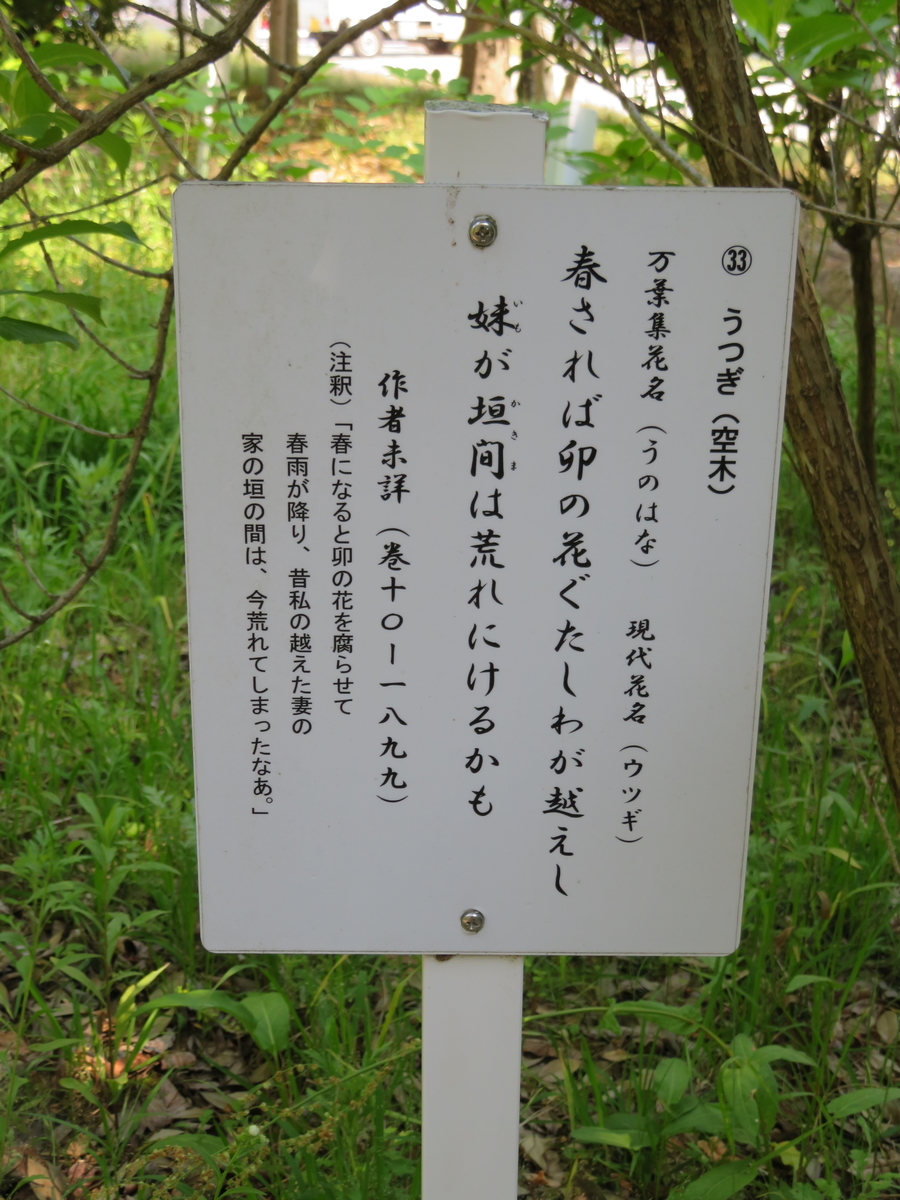 ㉝ うつぎ（空木）
万葉集花名（うのはな） 現代花名（ウツギ）
春されば卯の花ぐたしわが越えし
妹が垣間は荒れにけるかも
作者未詳（巻十〇ー一八九九）
（注釈）「春になると卯の花を腐らせて
春雨が降り、昔私の越えた妻の
家の垣の間は、今荒れてしまったなあ。」